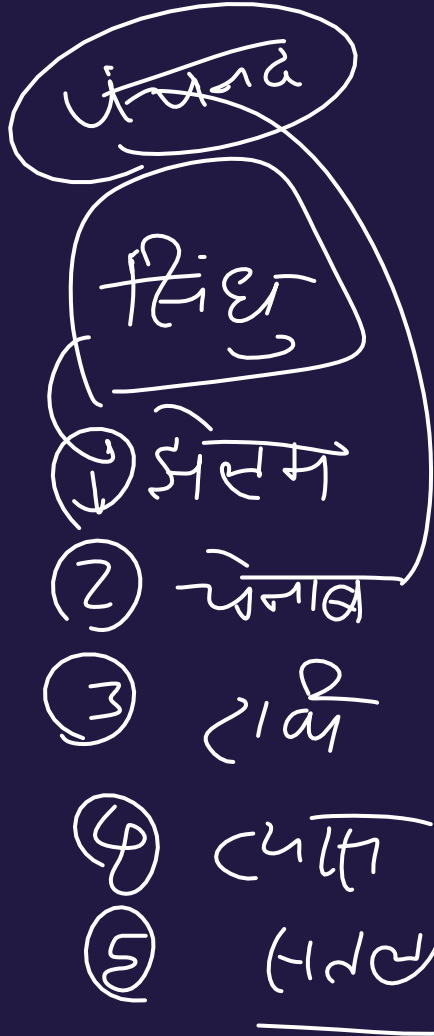 पंचनद
सिंधु
1 झेलम
2 चेनाब
3 रावी
4 व्यास
5 सतल